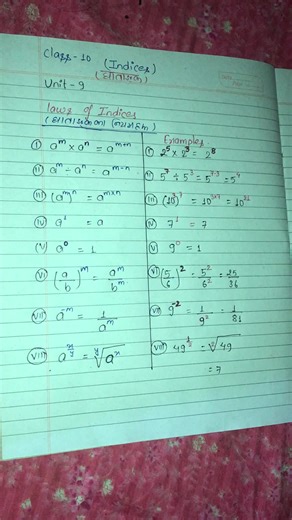 Class - 10 (Indices)
(घाताङ्क)
Unit - 9
laws of Indices
Examples
i) a^m × a^n = a^{m+n}
i) 2^5 × 2^3 = 2^8
ii) a^m ÷ a^n = a^{m-n}
iii) (a^m)^n = a^{m×n}
iv) a^1 = a
iv) 7^1 = 7
v) a^0 = 1
v) 9^0 = 1
vi) (a/b)^m = a^m/b^m
vi) (5/6)^2 = 5^2/6^2 = 25/36
vii) a^{-m} = 1/a^m
vii) 9^{-2} = 1/9^2 = 1/81
viii) a^{x/y} = ^y√a^x
viii) 49^{1/2} = ^2√49
= 7